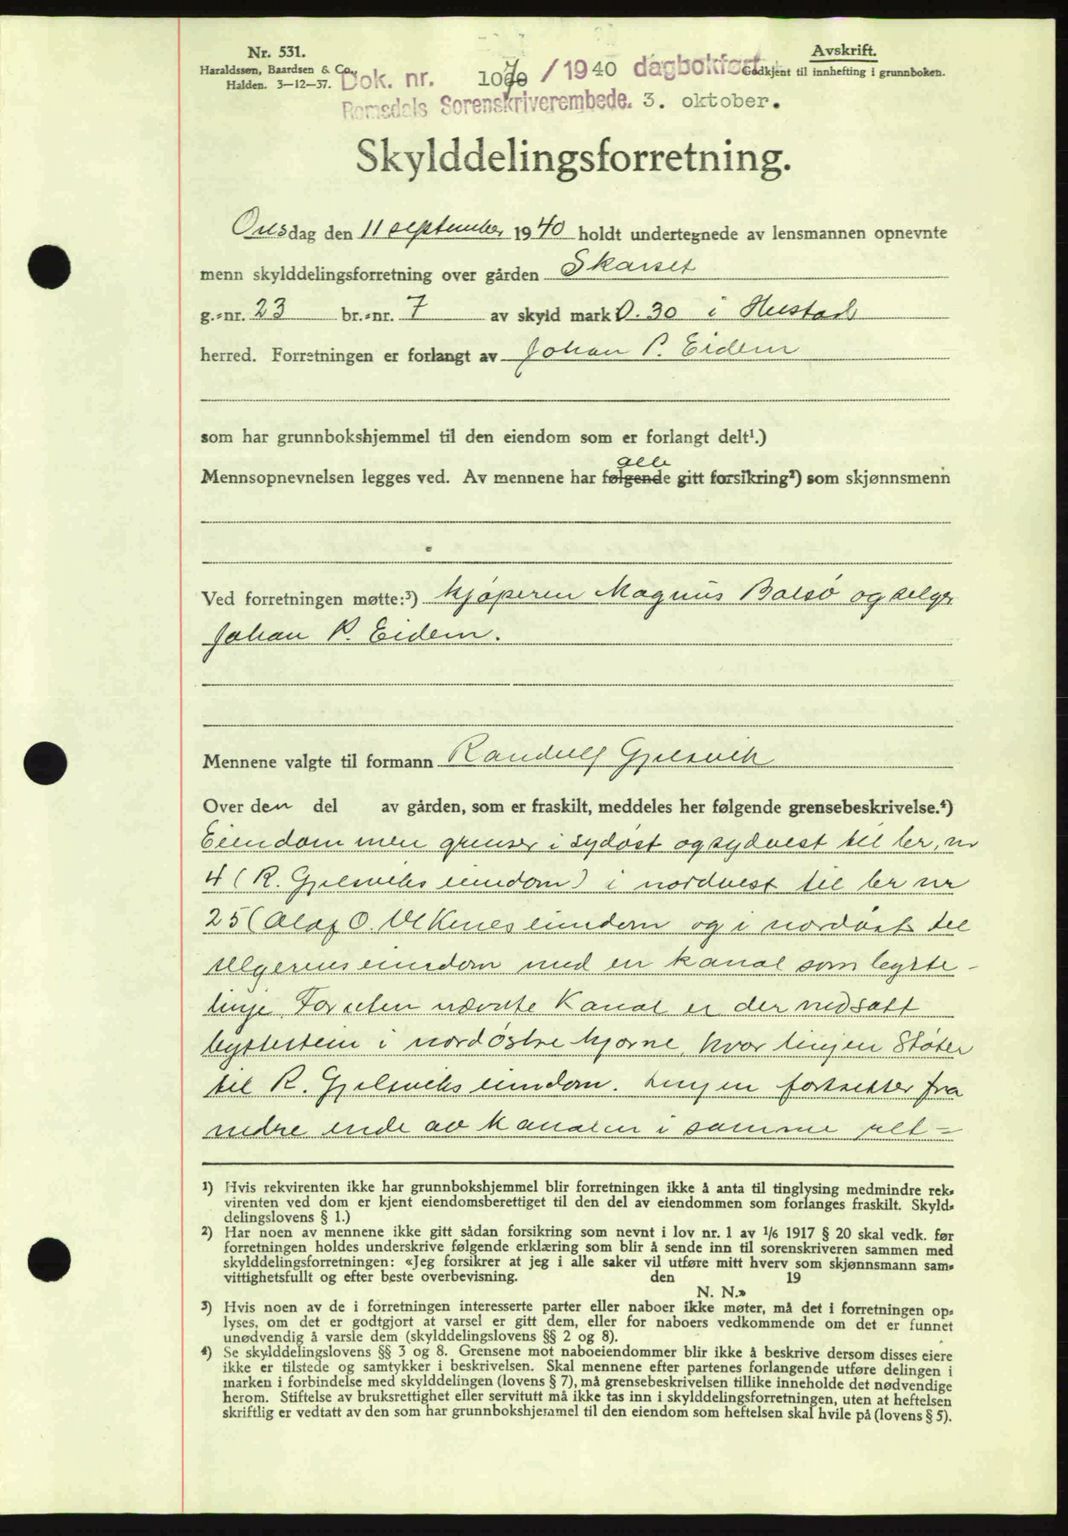 Nr. 531.
Haraldssen, Baardsen & Co.,
Halden. 3—12—37.
Avskrift.
Godkjent til innhefting i grunnboken.
Dok. nr. 1070 / 1940 dagbokført
Romsdals Sorenskriverembede. 3. oktober.
Skylddelingsforretning.
Onsdag den 11 september 1940 holdt undertegnede av lensmannen opnevnte
menn skylddelingsforretning over gården Skarset
g.-nr. 23 br.-nr. 7 av skyld mark 0.30 i Hustad
herred. Forretningen er forlangt av Johan P. Eidem
som har grunnbokshjemmel til den eiendom som er forlangt delt¹.)
alle
Mennsopnevnelsen legges ved. Av mennene har følgende gitt forsikring²) som skjønnsmenn
Ved forretningen møtte:³) kjøperen Magnus Bolsø og selger
Johan P. Eidem.
Mennene valgte til formann Randulf Gjelsvik
Over den del av gården, som er fraskilt, meddeles her følgende grensebeskrivelse.⁴)
Eiendommen grenser i sydøst og sydvest til br. nr
4 (R. Gjelsviks eiendom) i nordvest til br nr
25 (Olaf O. Vikenes eiendom og i nordøst til
selgerens eiendom med en kanal som bytte-
linje. Foruten nævnte Kanal er der nedsatt
byttestein i nordøstre hjørne, hvor linjen støter
til R. Gjelsviks eiendom. Linjen fortsetter fra
nedre ende av kanalen i samme ret=
¹) Hvis rekvirenten ikke har grunnbokshjemmel blir forretningen ikke å anta til tinglysing medmindre rek-
virenten ved dom er kjent eiendomsberettiget til den del av eiendommen som forlanges fraskilt. Skyld-
delingslovens § 1.)
²) Har noen av mennene ikke gitt sådan forsikring som nevnt i lov nr. 1 av 1/6 1917 § 20 skal vedk. før
forretningen holdes underskrive følgende erklæring som blir å sende inn til sorenskriveren sammen med
skylddelingsforretningen: «Jeg forsikrer at jeg i alle saker vil utføre mitt hverv som skjønnsmann sam-
vittighetsfullt og efter beste overbevisning. den 19
N. N.»
³) Hvis noen av de i forretningen interesserte parter eller naboer ikke møter, må det i forretningen op-
lyses, om det er godtgjort at varsel er gitt dem, eller for naboers vedkommende om det er funnet
unødvendig å varsle dem (skylddelingslovens §§ 2 og 8).
⁴) Se skylddelingslovens §§ 3 og 8. Grensene mot naboeiendommer blir ikke å beskrive dersom disses eiere
ikke er tilstede og samtykker i beskrivelsen. Skal mennene efter partenes forlangende utføre delingen i
marken i forbindelse med skylddelingen (lovens § 7), må grensebeskrivelsen tillike inneholde det nødvendige
herom. Stiftelse av bruksrettighet eller servitutt må ikke tas inn i skylddelingsforretningen, uten at heftelsen
skriftlig er vedtatt av den som har grunnbokshjemmel til den eiendom som heftelsen skal hvile på (lovens § 5).